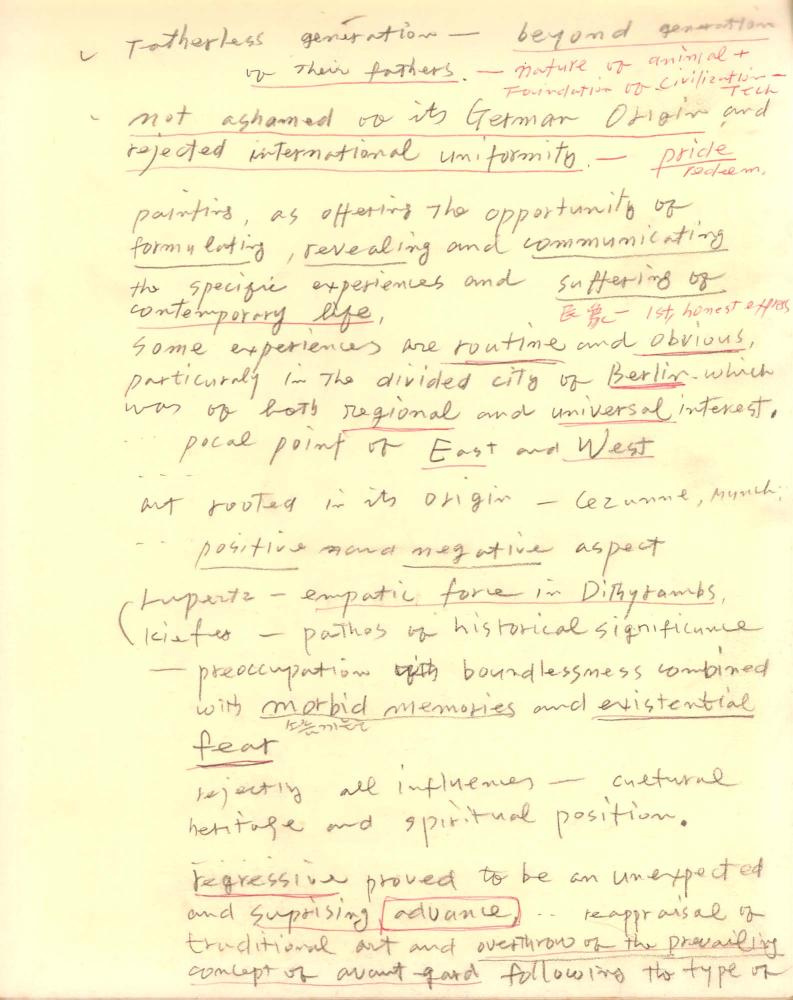 Fatherless generation — beyond generation
of Their fathers. — nature of animal +
Foundation of Civilization — Tech
not ashamed of its German Origin and
rejected international uniformity. — pride
redeem.
painting, as offering the opportunity of
formulating, revealing and communicating
the specific experiences and suffering of
contemporary life, 1st, honest express
Some experiences are routine and obvious,
particuraly in The divided city of Berlin. which
was of both regional and universal interest.
... pocal point of East and West
art rooted in its origin — Cezunne, Munch,
... positive and negative aspect
Lupertz — empatic force in Dithyrambs,
Kiefer — pathos of historical significance
— preoccupation with boundlessness combined
with morbid memories and existential
fear
rejecting all influences — cultural
heritage and spiritual position.
regressive proved to be an unexpected
and suprising advance, .. reappraisal of
traditional art and overthrow of the prevailing
concept of avant-gard following the type of